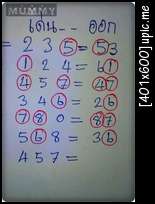 MUMMY
เดน-- ออก
= 2 3 5 = 53
1 2 4 = 61
4 5 7 = 47
3 4 6 = 26
7 8 0 = 87
5 6 8 = 36
4 5 7 =
[401x600] upic.me